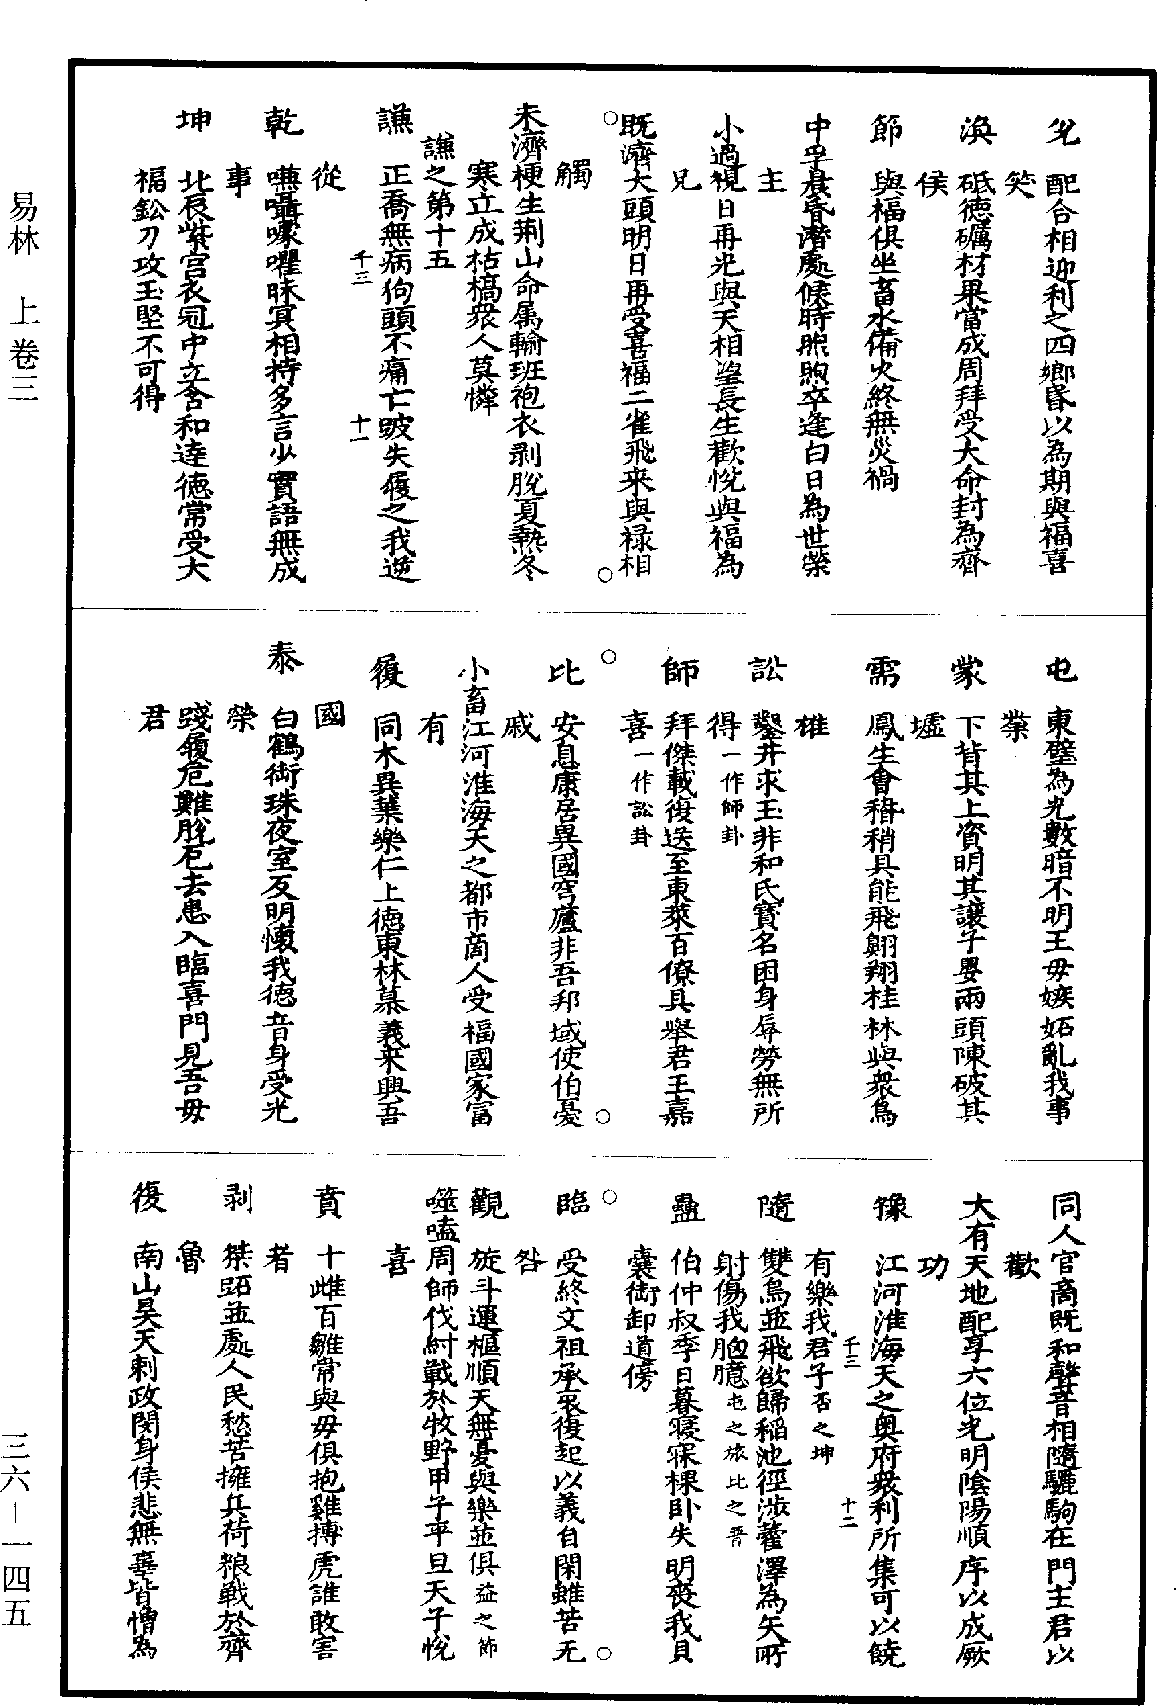 易林 上卷三
三六－一四五
兌 配合相迎利之四鄉昏以為期與福喜
笑
渙 砥德礪材果當成周拜受大命封為齊
侯
節 與福俱坐畜水備火終無災禍
中孚晨昏潛處候時煦煦卒逢白日為世榮
主
小過視日再光與天相望長生歡悅與福為
兄
○既濟大頭明日再受喜福二雀飛来與禄相○
觸
未濟梗生荆山命属輸班袍衣剥脫夏熱冬
寒立成枯槁衆人莫憐
謙之第十五
謙 正喬無病佝頭不痛亡跛失履之我逆
千三 十一
從
乾 囁嚅嚄嚾昧冥相持多言少實語無成
事
坤 北辰紫宮衣冠中立含和達徳常受大
福鈆刀攻玉堅不可得
屯 東璧為光數暗不明王毋嫉妬亂我事
業
蒙 下背其上資明其讓子嬰兩頭陳破其
墟
需 鳳生會稽稍具能飛翺翔桂林與衆鳥
雄
訟 鑿井求玉非和氏寳名困身辱勞無所
得一作師卦
師 拜傑載復送至東萊百僚具舉君王嘉
喜一作訟卦
○比 安息康居異國穹廬非吾邦域使伯憂○
戚
小畜江河淮海天之都市商人受福國家富
有
履 同木異葉樂仁上德東林慕義来興吾
國
泰 白鶴衘珠夜室反明懷我徳音身受光
榮
踐履危難脫厄去患入臨喜門見吾毋
君
同人官商既和聲音相隨驪駒在門主君以
歡
大有天地配享六位光明陰陽順序以成厥
功
豫 江河淮海天之奥府衆利所集可以饒
千三 十二
有樂我君子否之坤
隨 雙鳥並飛欲歸稻池徑涉雚澤為矢所
射傷我胸臆屯之旅比之晋
蠱 伯仲叔季日暮寢寐倮卧失明喪我貝
囊衘卸道傍
○臨 受終文祖承衰復起以義自閑雖苦无○
咎
觀 旋斗運樞順天無憂與樂並俱益之節
噬嗑周師伐紂戰於牧野甲子平旦天子悅
喜
賁 十雌百雛常與毋俱抱雞搏虎誰敢害
者
剥 桀跖並處人民愁苦擁兵荷粮戰於齊
魯
復 南山昊天刺政閔身侯悲無辜皆憎為